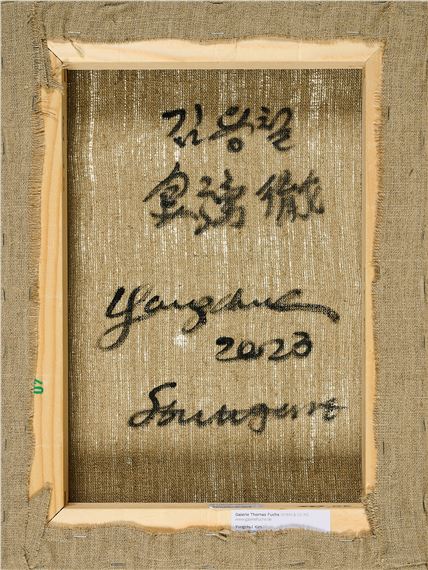 김용철
金 徹
Yongchul
2023
Stuttgart
07
Galerie Thomas Fuchs GmbH & Co. KG
www.galeriefuchs.de
Yongchul Kim